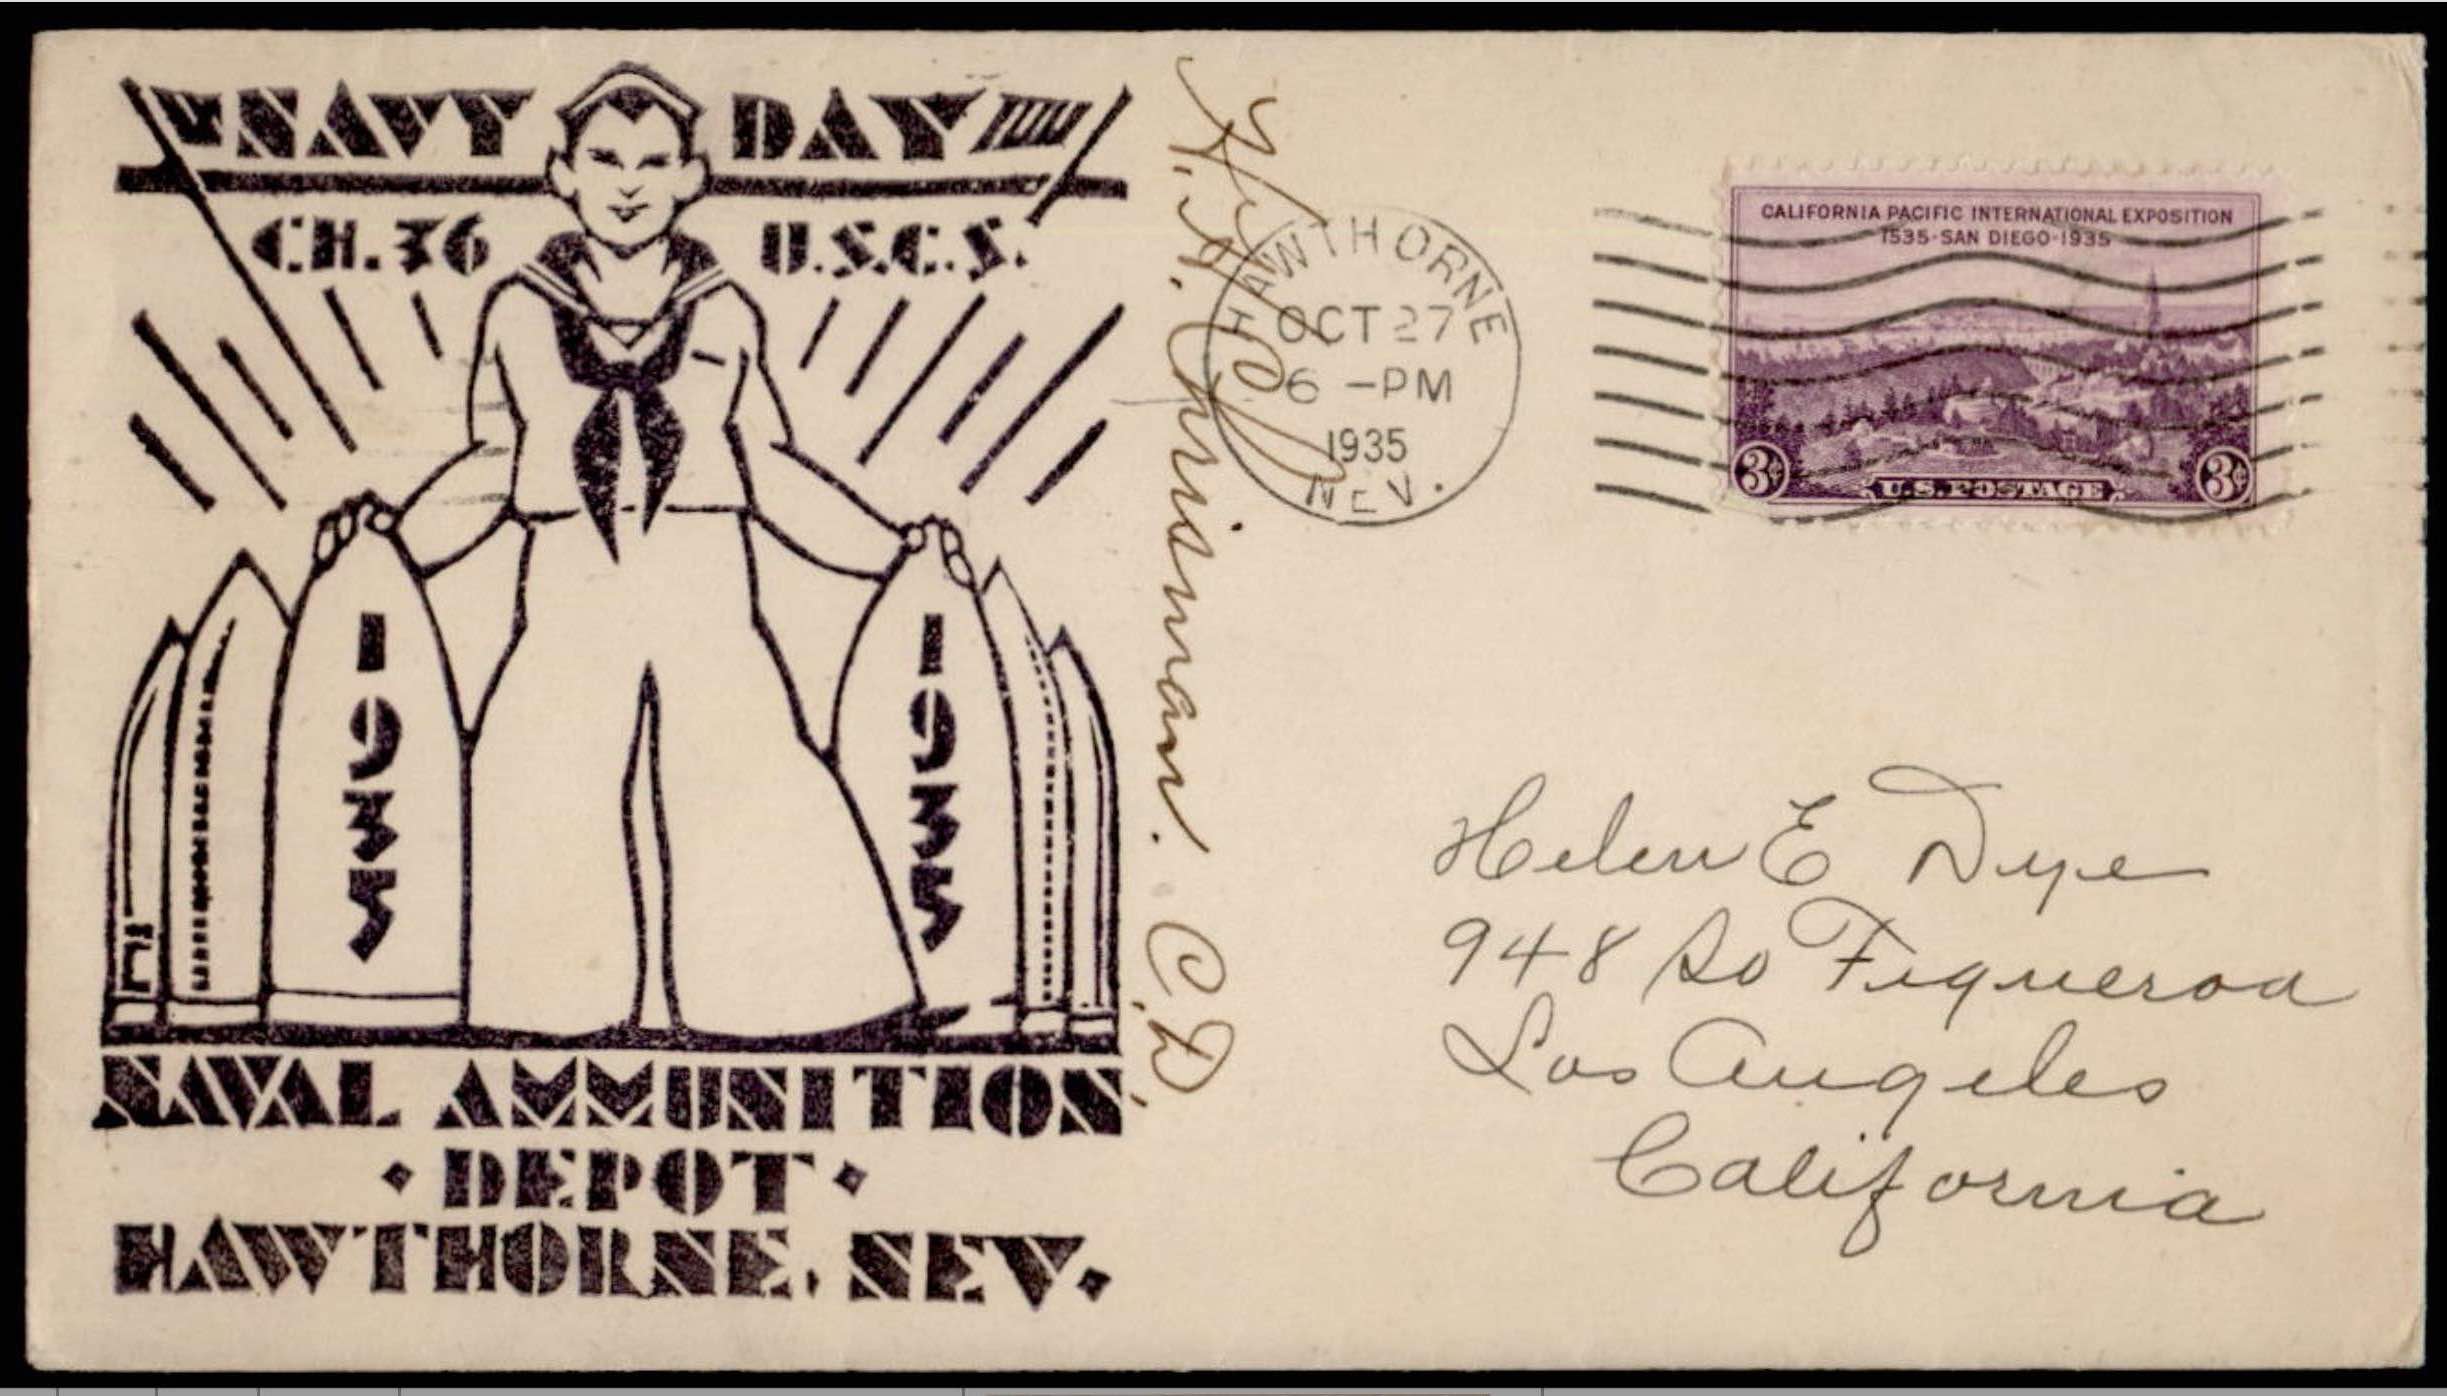 NAVY DAY
CH. 36 U.S.C.S.
1935
1935
NAVAL AMMUNITION
• DEPOT •
HAWTHORNE, NEV.
HAWTHORNE
OCT 27
6 -PM
1935
NEV.
CALIFORNIA PACIFIC INTERNATIONAL EXPOSITION
1535-SAN DIEGO-1935
3¢ U.S. POSTAGE 3¢
Helen E Dye
948 So Figueroa
Los Angeles
California